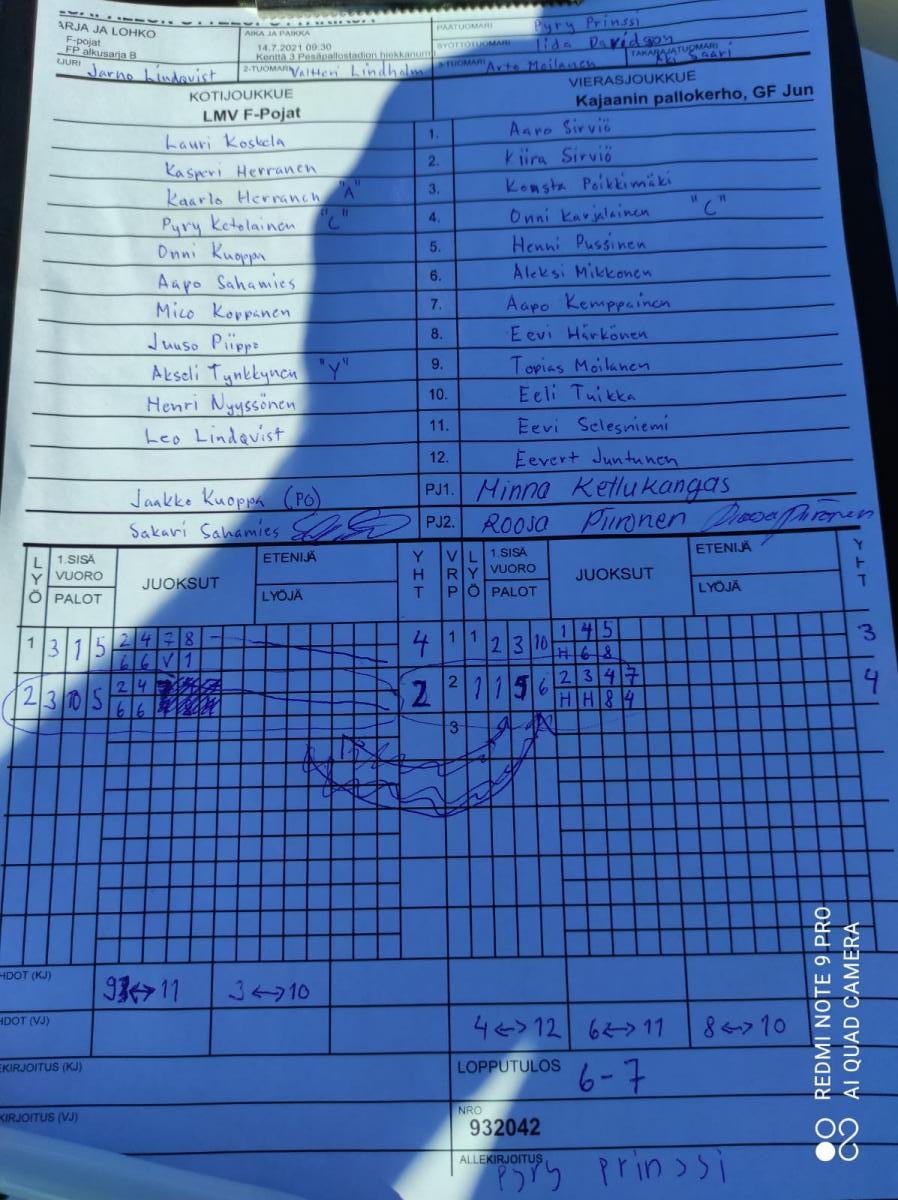 ARJA JA LOHKO
F-pojat
FP alkusarja B
AIKA JA PAIKKA
14.7.2021 09:30
Kenttä 3 Pesäpallostadion hiekkanurm
PÄÄTUOMARI Pyry Prinssi
SYÖTTÖTUOMARI Iida Davidson
TAKARAJATUOMARI Aki Saari
Jarno Lindqvist
2-TUOMARI Valtteri Lindholm
3-TUOMARI Arto Moilanen
KOTIJOUKKUE
LMV F-Pojat
VIERASJOUKKUE
Kajaanin pallokerho, GF Jun
Lauri Koskela 1. Aaro Sirviö
Kasperi Herranen 2. Kiira Sirviö
Kaarlo Herranen "A" 3. Konsta Poikkimäki
Pyry Ketolainen "C" 4. Onni Karjalainen "C"
Onni Kuoppa 5. Henni Pussinen
Aapo Sahamies 6. Aleksi Mikkonen
Mico Koppanen 7. Aapo Kemppainen
Juuso Piippo 8. Eevi Härkönen
Akseli Tynkkynen "Y" 9. Topias Moilanen
Henri Nyyssönen 10. Eeli Tuikka
Leo Lindqvist 11. Eevi Selesniemi
12. Eevert Juntunen
Jaakko Kuoppa (PO) PJ1. Minna Ketlukangas
Sakari Sahamies PJ2. Roosa Piironen Roosa Piironen
LYÖ 1.SISÄ VUORO PALOT JUOKSUT ETENIJÄ LYÖJÄ YHT VRP LYÖ 1.SISÄ VUORO PALOT JUOKSUT ETENIJÄ LYÖJÄ YHT
1 3 1 5 2 4 7 8 4 1 1 2 3 10 1 4 5 3
6 6 V 1 H 6 8
2 3 10 5 2 4 2 2 1 1 5 6 2 3 4 7 4
6 6 H H 8 4
3
HDOT (KJ) 9 ↔ 11 3 ↔ 10
HDOT (VJ) 4 ↔ 12 6 ↔ 11 8 ↔ 10
EKIRJOITUS (KJ) LOPPUTULOS 6-7
KIRJOITUS (VJ) NRO
932042
ALLEKIRJOITUS Pyry prinssi
REDMI NOTE 9 PRO
AI QUAD CAMERA